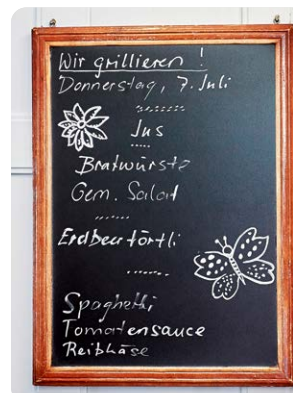 Wir grillieren !
Donnerstag, 7. Juli
Jus
Bratwürste
Gem. Salat
Erdbeertörtli
Spaghetti
Tomatensauce
Reibkäse